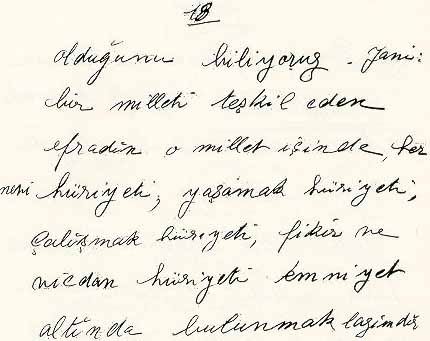 18
olduğunu biliyoruz. Yani:
bir milleti teşkil eden
efradın o millet içinde, her
nevi hüriyeti, yaşamak hüriyeti,
çalışmak hüriyeti, fikir ve
vicdan hüriyeti emniyet
altında bulunmak lazımdır